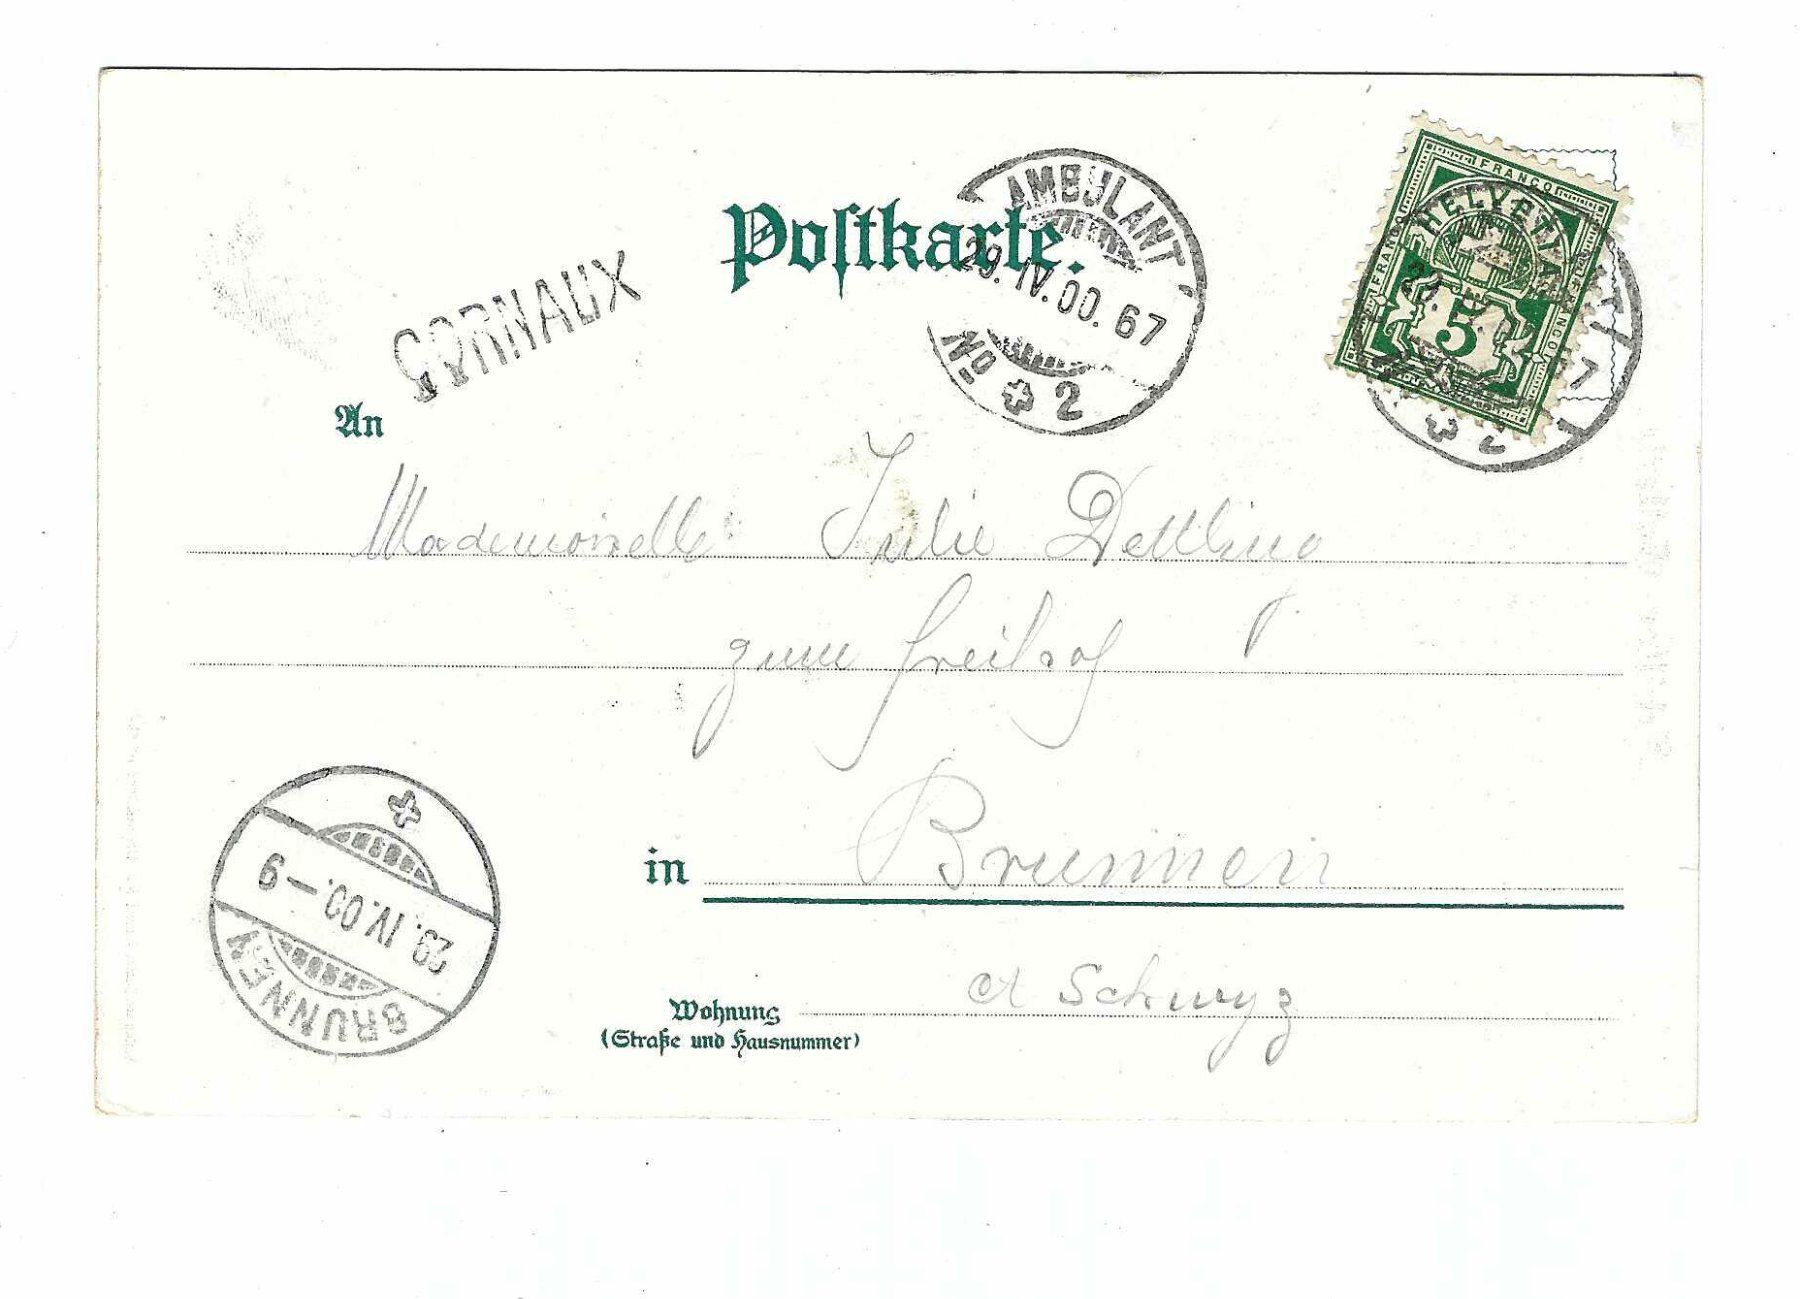 Postkarte.
AMBULANT
29. IV. 00. 67
No 2
FRANCO
HELVETIA
FRANCO
FRANCO
5
67
2
CORNAUX
An
Mademoiselle Julie Dettling
zum Freihof
in Brunnen
ct Schwyz
Wohnung
(Straße und Hausnummer)
29. IV. 00. — 9
BRUNNEN